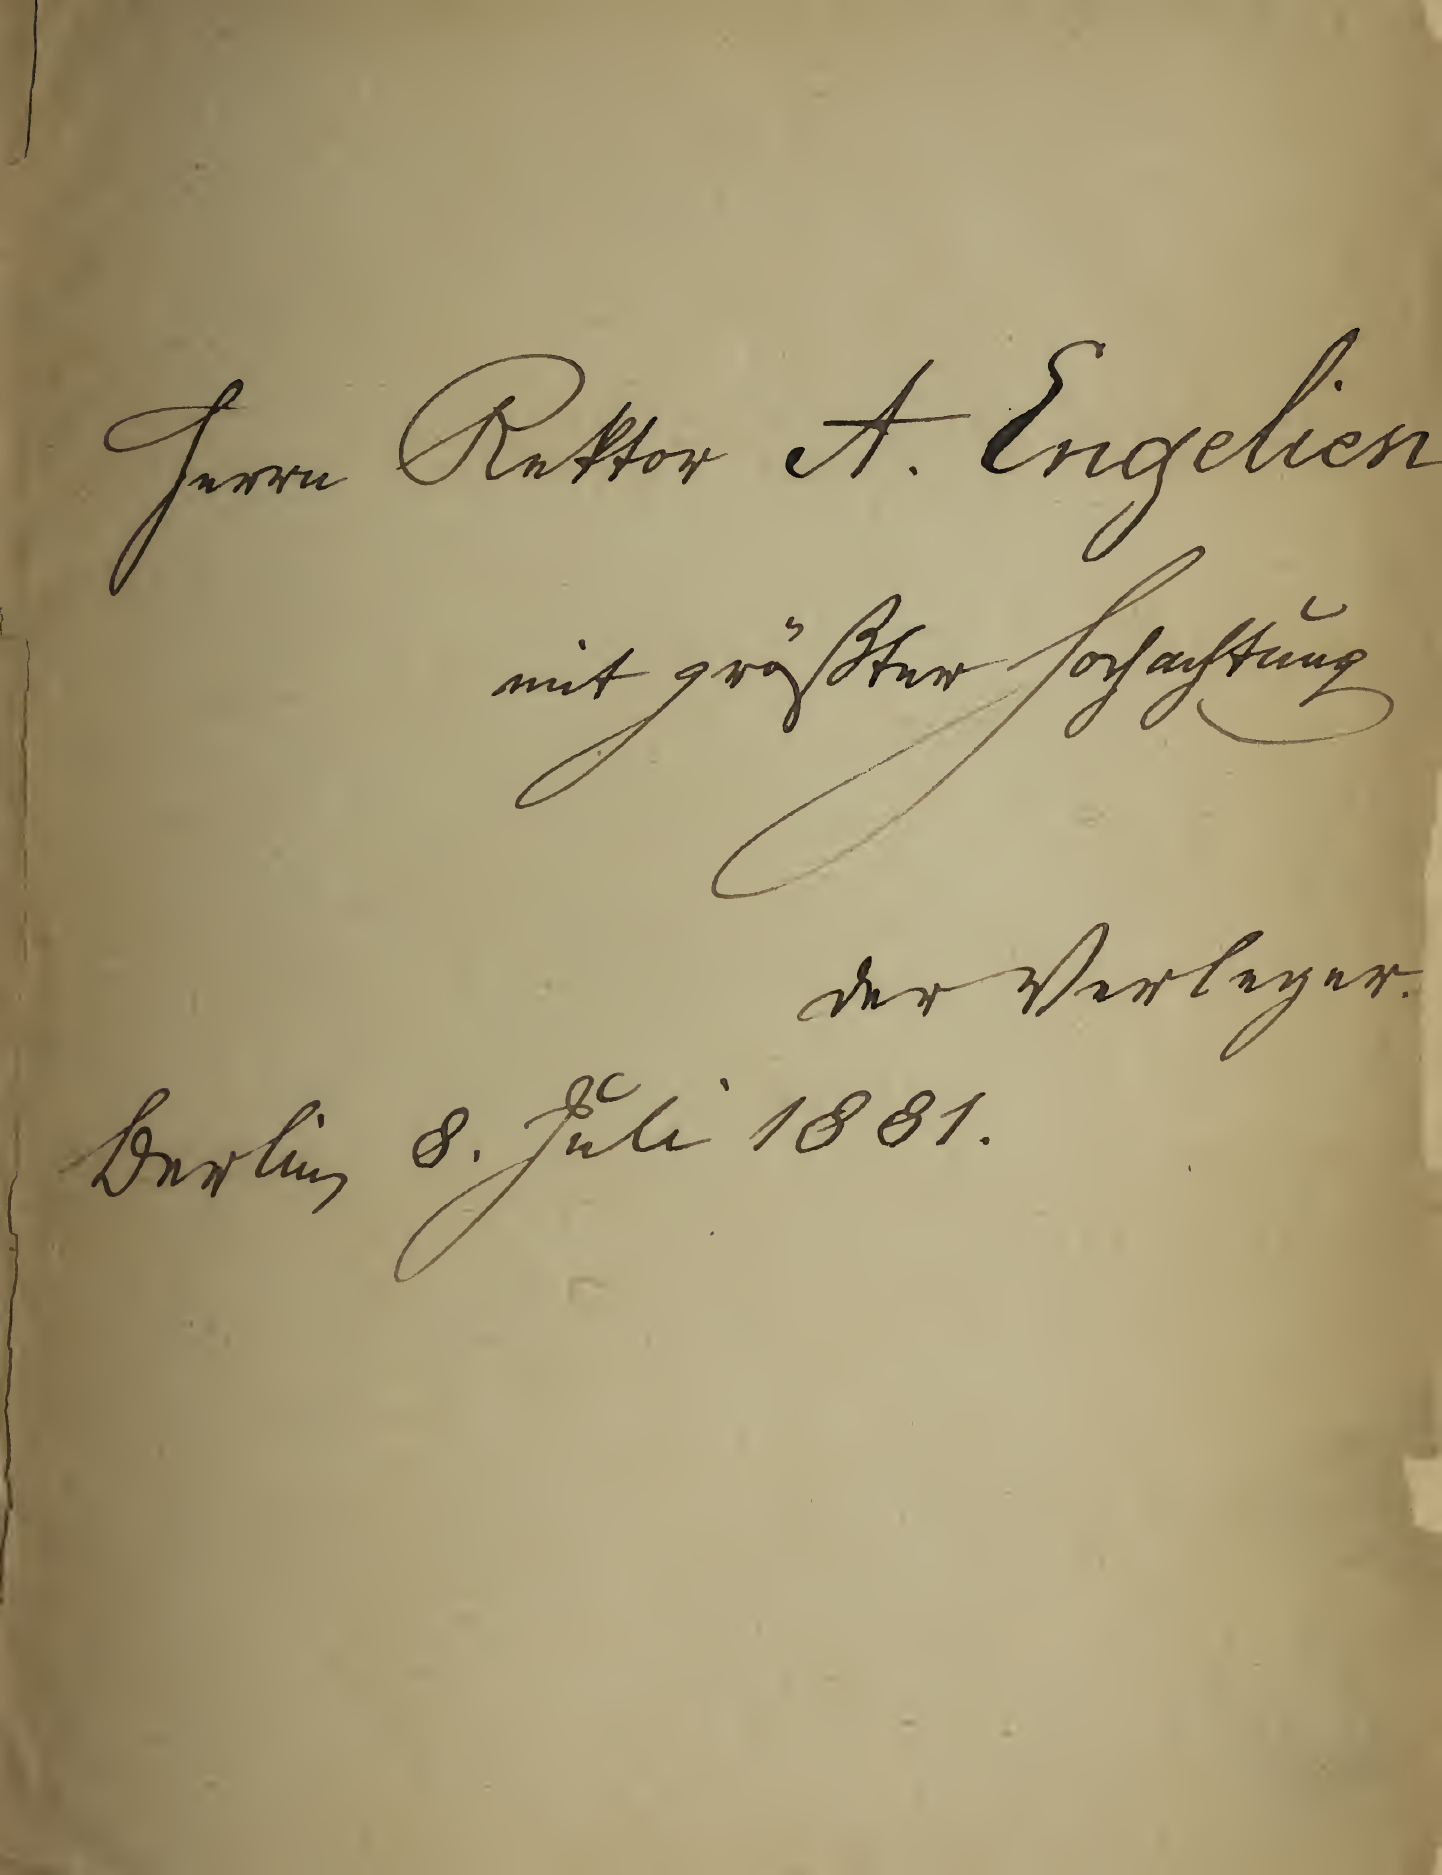 Herrn Rektor A. Engelien
mit größter Hochachtung
der Verleger.
Berlin, 8. Juli 1881.